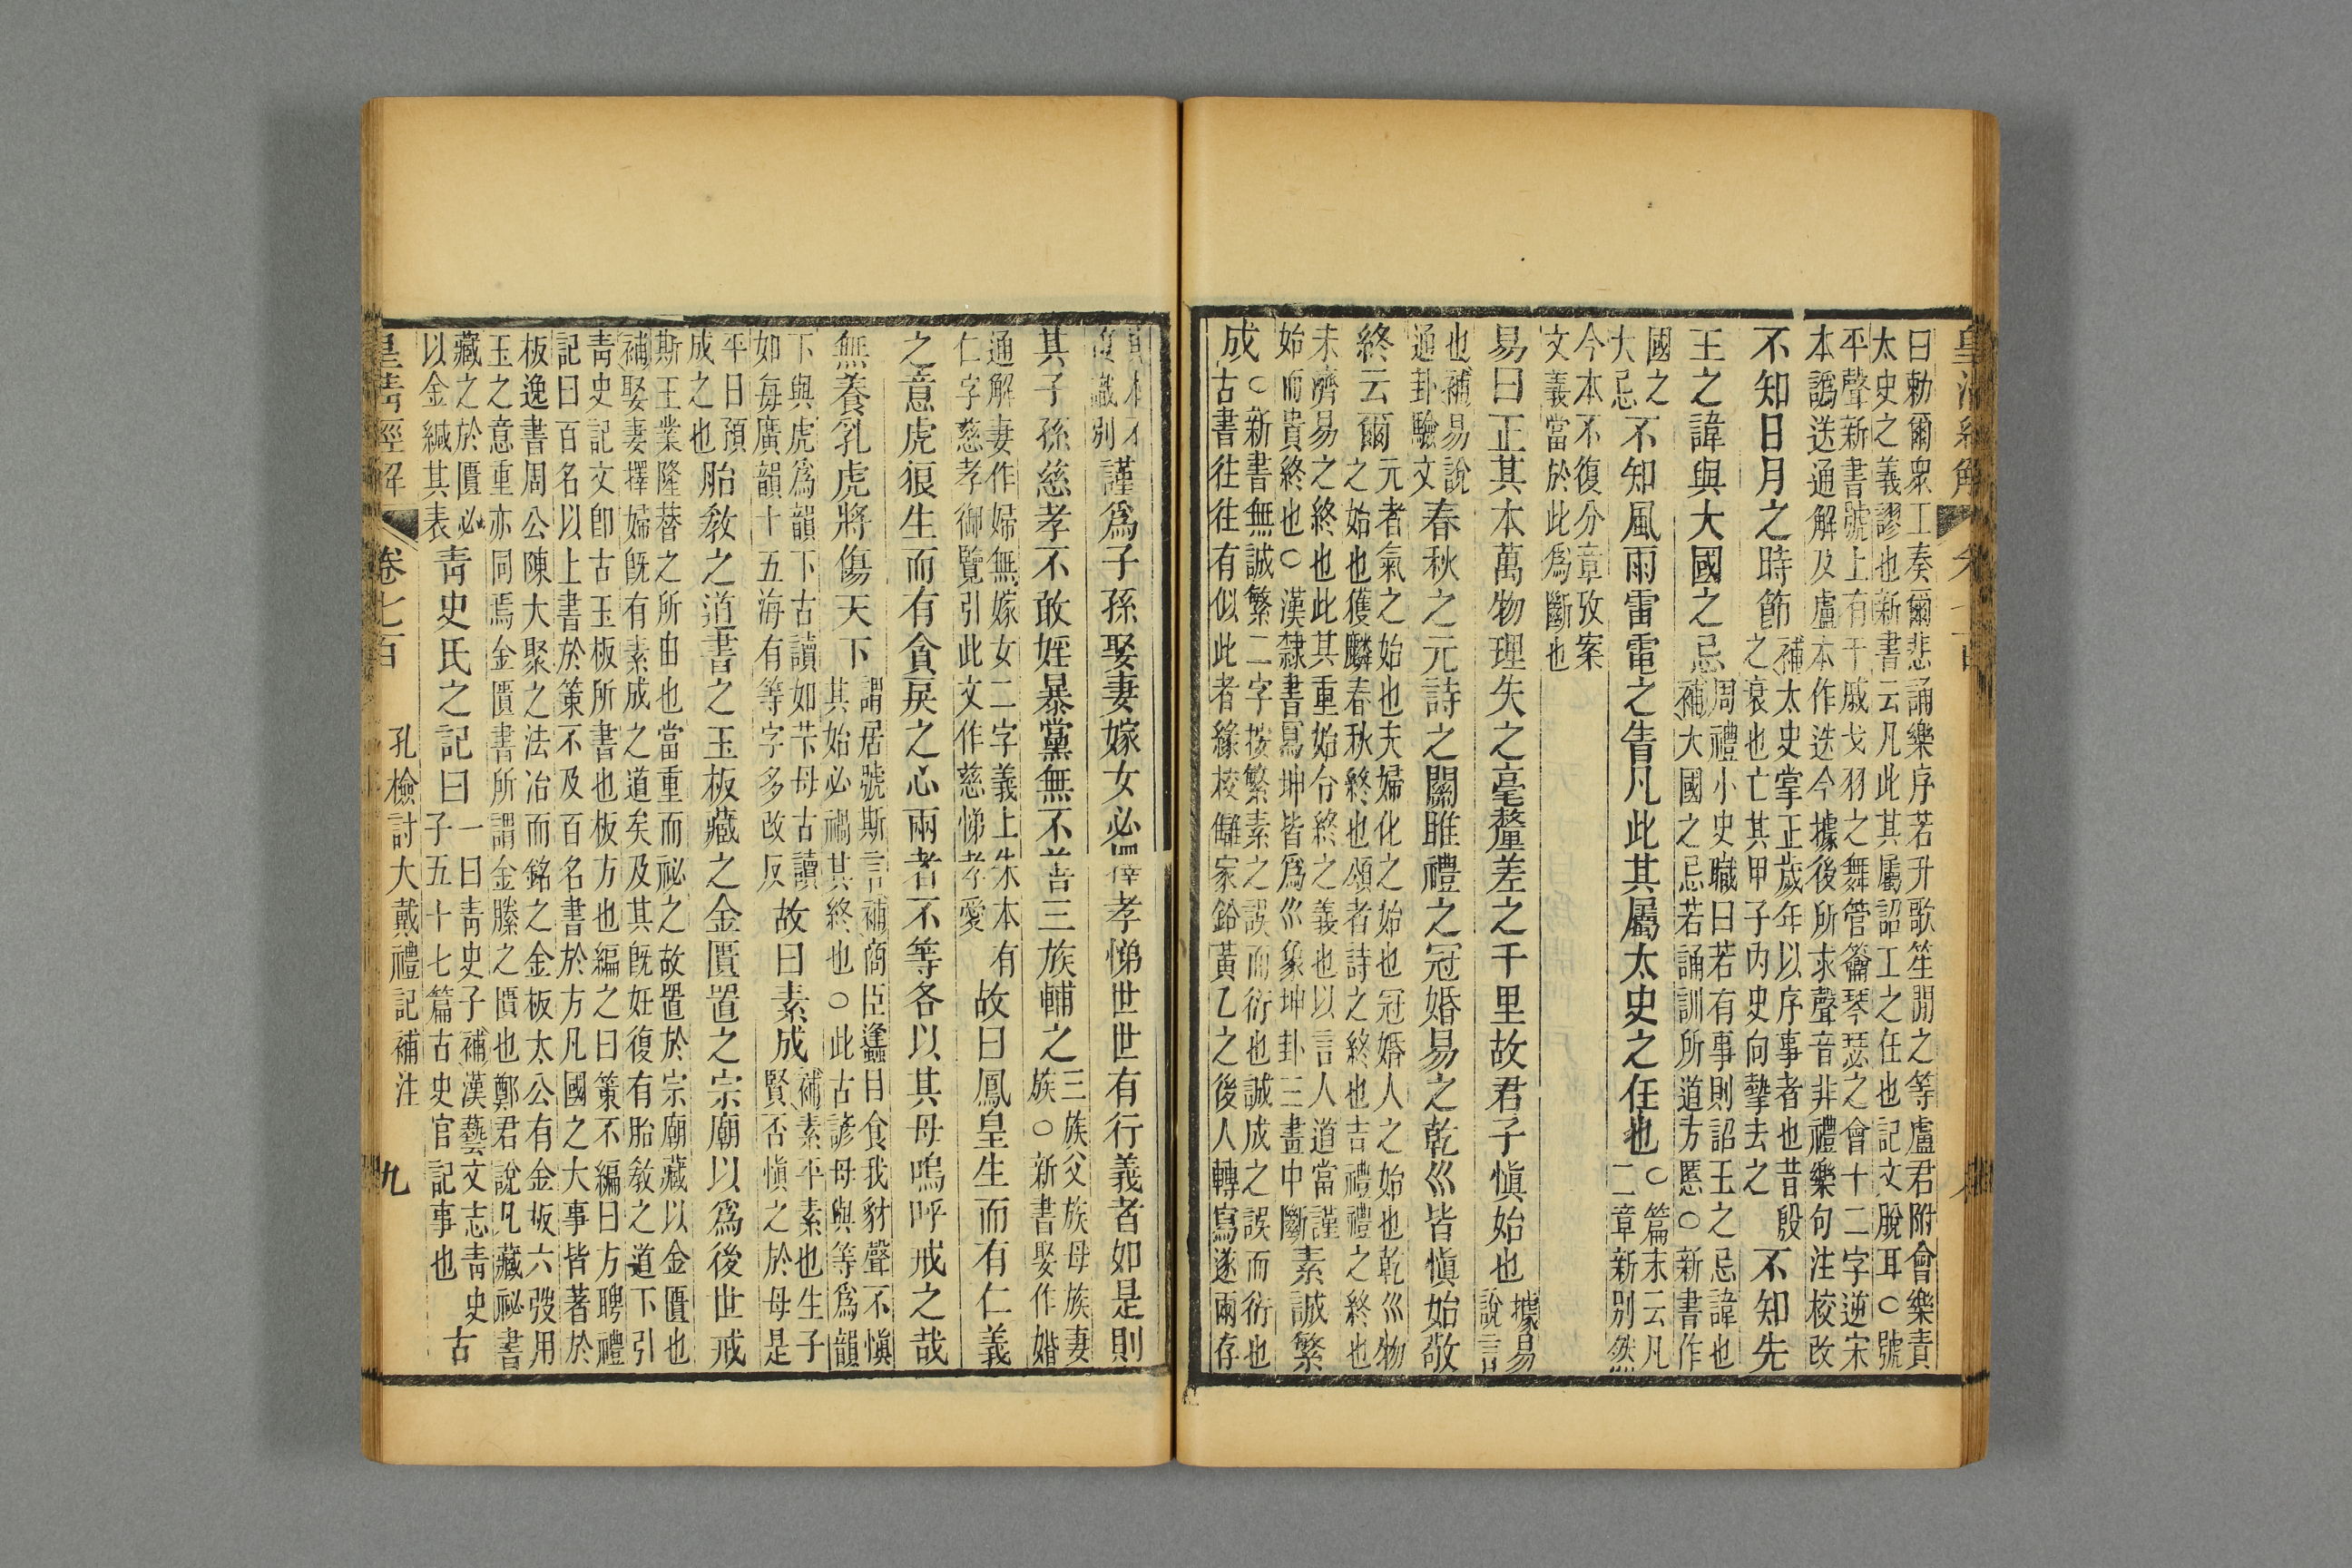 皇清經解
曰勅爾衆工奏爾悲誦樂序若升歌笙閒之等盧君附會樂責
太史之義謬也新書云凡此其屬詔工之任也記文脫耳○號
平聲新書號上有干戚戈羽之舞管籥琴瑟之會十二字逆宋
本譌迭通解及盧本作迭今據後所求聲音非禮樂句注校改
不知日月之時節補太史掌正歲年以序事者也昔殷之衰也亡其甲子內史向摯去之不知先
王之諱與大國之忌周禮小史職曰若有事則詔王之忌諱也補大國之忌若誦訓所道方慝○新書作
國之大忌不知風雨雷電之眚凡此其屬太史之任也○篇末云凡二章新別然
今本不復分章攷案文義當於此爲斷也
易曰正其本萬物理失之毫釐差之千里故君子愼始也據易說言
也補易說通卦驗文春秋之元詩之關雎禮之冠婚易之乾巛皆愼始敬
終云爾元者氣之始也夫婦化之始也冠婚人之始也乾巛物之始也獲麟春秋終也頌者詩之終也吉禮禮之終也
未濟易之終也此其重始合終之義也以言人道當謹始而貴終也○漢隸書寫坤皆爲巛象坤卦三畫中斷素誠繁
成○新書無誠繁二字按繁素之誤而衍也誠成之誤而衍也古書往往有似此者緣校讎家鉛黃乙之後人轉寫遂兩存
識別謹爲子孫娶妻嫁女必擇孝悌世世有行義者如是則
其子孫慈孝不敢婬暴黨無不善三族輔之三族父族母族妻族○新書娶作婚
通解妻作婦無嫁女二字義上朱本有仁字慈孝御覽引此文作慈悌孝愛故曰鳳皇生而有仁義
之意虎狼生而有貪戾之心兩者不等各以其母嗚呼戒之哉
無養乳虎將傷天下謂居號斯言補商臣蠭目食我豺聲不愼其始必禍其終也○此古諺母與等爲韻
下與虎爲韻下古讀如苄母古讀如每廣韻十五海有等字多改反故曰素成補素平素也生子賢否愼之於母是
平日預成之也胎敎之道書之玉板藏之金匱置之宗廟以爲後世戒
斯王業隆替之所由也當重而祕之故置於宗廟藏以金匱也
補娶妻擇婦旣有素成之道矣及其旣妊復有胎敎之道下引
靑史記文卽古玉板所書也板方也編之曰策不編曰方聘禮
記曰百名以上書於策不及百名書於方凡國之大事皆著於
板逸書周公陳大聚之法冶而銘之金板太公有金板六弢用
玉之意重亦同焉金匱書所謂金縢之匱也鄭君說凡藏祕書
藏之於匱必以金緘其表靑史氏之記曰一曰靑史子補漢藝文志靑史子五十七篇古史官記事也古
皇清經解
卷七百
孔檢討大戴禮記補注
九